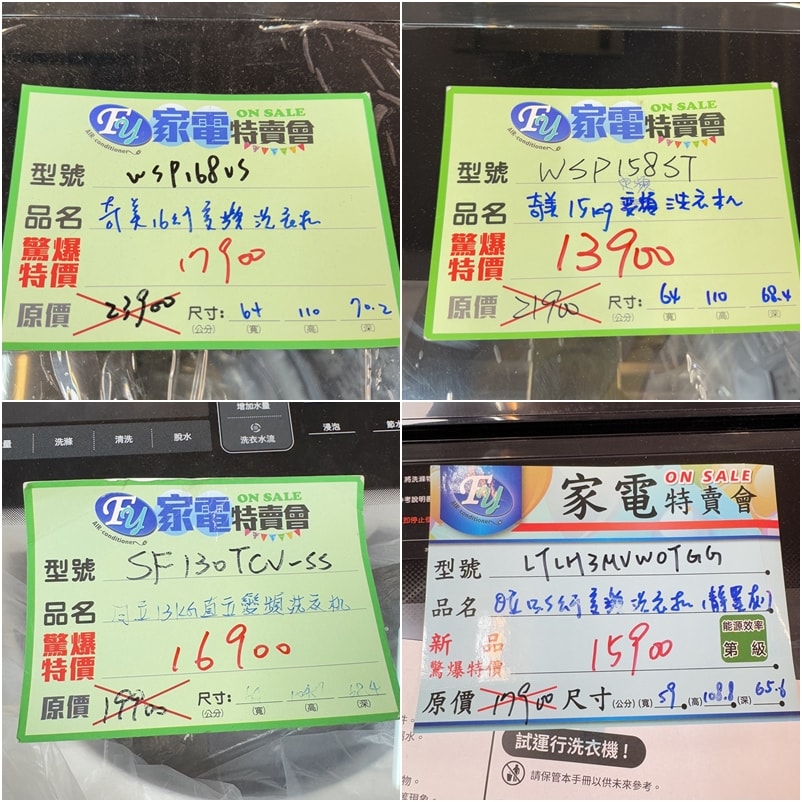 ON SALE
Fy 家電特賣會
AIR-conditioner
型號 WSP168VS
品名 奇美16公斤变頻洗衣机
驚爆特價 17900
原價 23900 尺寸: 64 110 70.2
(公分) (寬) (高) (深)
ON SALE
Fy 家電特賣會
AIR-conditioner
型號 WSP158ST
定頻
品名 奇美15kg 洗衣机
驚爆特價 13900
原價 21900 尺寸: 64 110 68.4
(公分) (寬) (高) (深)
增加水量
量 洗滌 清洗 脫水 洗衣水流 浸泡 節水
ON SALE
Fy 家電特賣會
AIR-conditioner
型號 SF130TCV-SS
品名 日立13KG直立變頻洗衣机
驚爆特價 16900
原價 19900 尺寸:
(公分) (寬) (高) (深)
ON SALE
Fy 家電特賣會
AIR-conditioner
型號 LTLH3MVWOTGG
品名 变頻洗衣机
新品 驚爆特價 15900
能源效率
第 級
原價 17900 尺寸 (公分) (寬) 59 (高) 108.8 (深) 65.6
試運行洗衣機！
請保管本手冊以供未來參考。